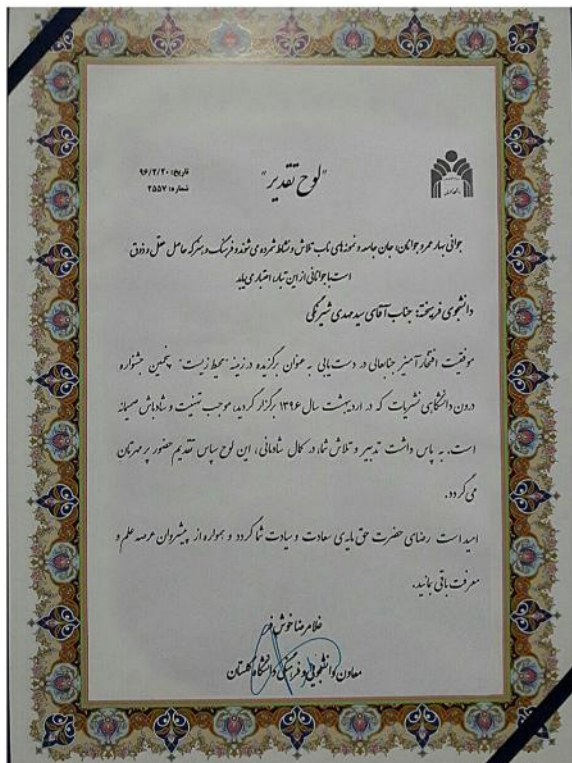 "لوح تقدیر"
تاریخ: ۹۶/۲/۲۰
شماره: ۲۵۵۷
جوانی بهار عمر و جوانان، جان جامعه و نمونه‌های ناب تلاش و نشاط شمرده می‌شوند و فرهنگ و هنر که حاصل عقل و ذوق
است با جوانانی از این تبار، اعتباری یابد
دانشجوی فرهیخته: جناب آقای سید مهدی شیرنگی
موفقیت افتخارآمیز جنابعالی در دست‌یابی به عنوان برگزیده در زمینه "محیط زیست" پنجمین جشنواره
درون دانشگاهی نشریات که در اردیبهشت سال ۱۳۹۶ برگزار گردید، موجب تهنیت و شادباش صمیمانه
است. به پاس داشت تدبیر و تلاش شما، در کمال شادمانی، این لوح سپاس تقدیم حضور پر مهرتان
می‌گردد.
امید است رضای حضرت حق مایه‌ی سعادت و سیادت شما گردد و همواره از پیشروان عرصه علم و
معرفت باقی بمانید.
غلامرضا خوش فر
معاون دانشجویی و فرهنگی دانشگاه گلستان